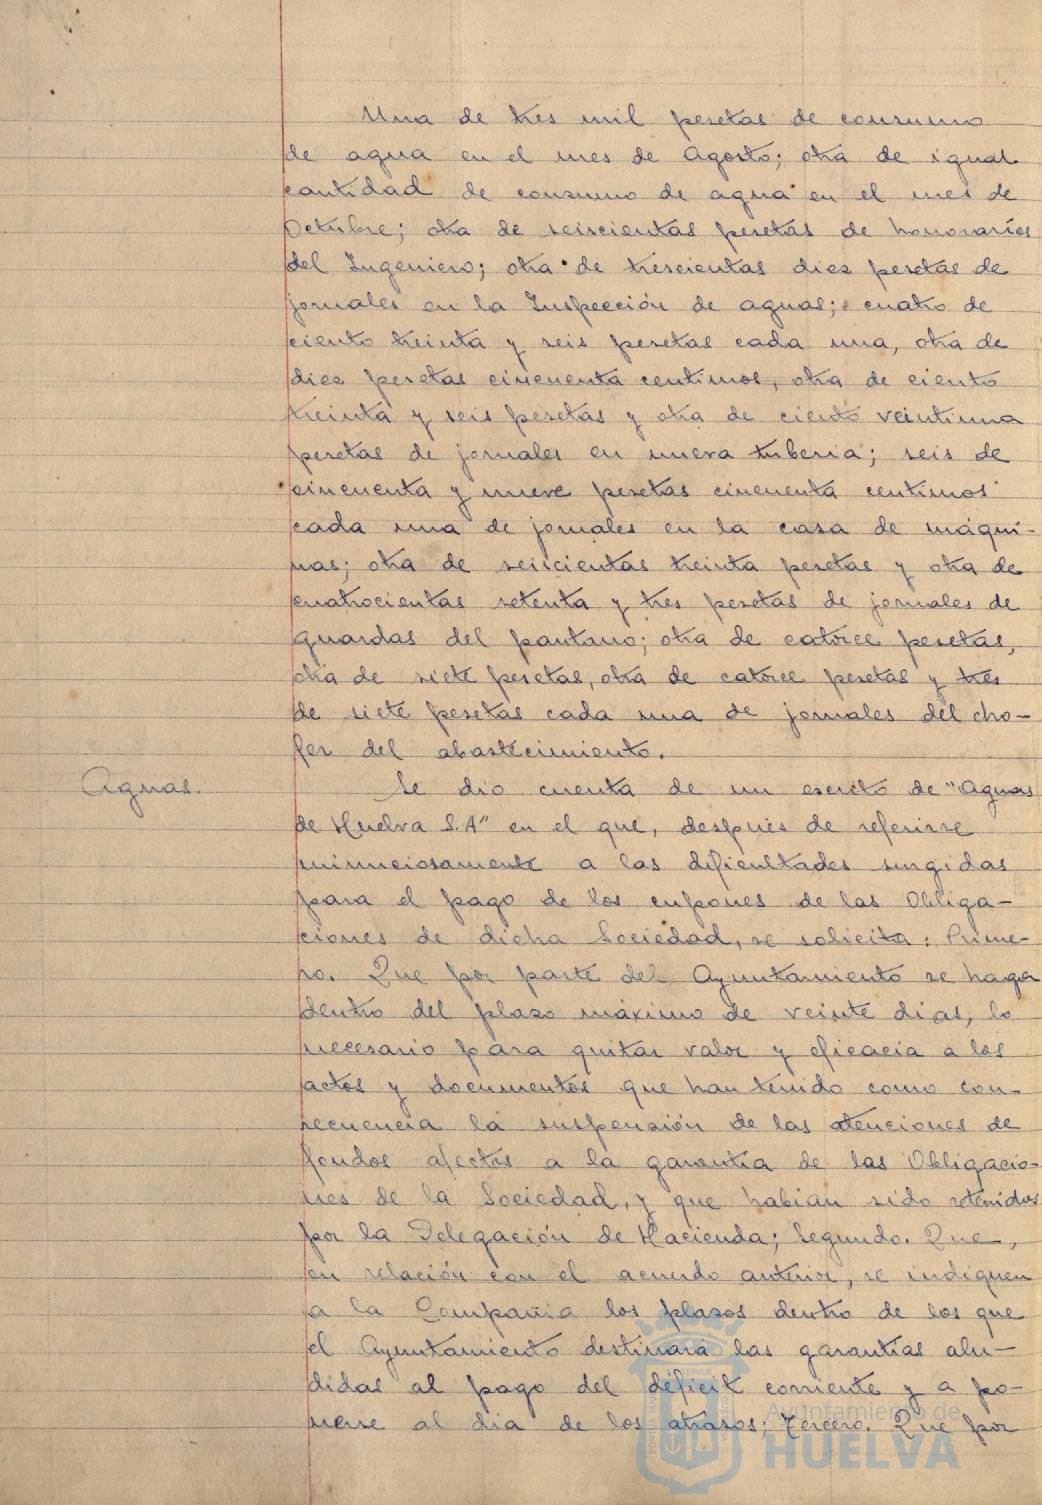 Una de tres mil pesetas de consumo
de agua en el mes de Agosto; otra de igual
cantidad de consumo de agua en el mes de
Octubre; otra de seiscientas pesetas de honorarios
del Ingeniero; otra de trescientas diez pesetas de
jornales en la Inspección de aguas; cuatro de
ciento treinta y seis pesetas cada una, otra de
diez pesetas cincuenta centimos, otra de ciento
treinta y seis pesetas y otra de ciento veintiuna
pesetas de jornales en nueva tuberia; seis de
cincuenta y nueve pesetas cincuenta centimos
cada una de jornales en la casa de máqui-
nas; otra de seiscientas treinta pesetas y otra de
cuatrocientas setenta y tres pesetas de jornales de
guardas del pantano; otra de catorce pesetas,
otra de siete pesetas, otra de catorce pesetas y tres
de siete pesetas cada una de jornales del cho-
fer del abastecimiento.
Aguas. Se dio cuenta de un escrito de "Aguas
de Huelva S.A" en el que, después de referirse
minuciosamente a las dificultades surgidas
para el pago de los cupones de las Obliga-
ciones de dicha Sociedad, se solicita: Prime-
ro. Que por parte del Ayuntamiento se haga
dentro del plazo máximo de veinte dias, lo
necesario para quitar valor y eficacia a los
actos y documentos que han tenido como con-
secuencia la suspensión de las atenciones de
fondos afectos a la garantia de las Obligacio-
nes de la Sociedad, y que habian sido retenidos
por la Delegación de Hacienda; Segundo. Que,
en relación con el acuerdo anterior, se indiquen
a la Compañia los plazos dentro de los que
el Ayuntamiento destinará las garantias alu-
didas al pago del déficit corriente y a po-
nerse al dia de los atrasos; Tercero. Que por
Ayuntamiento de
HUELVA